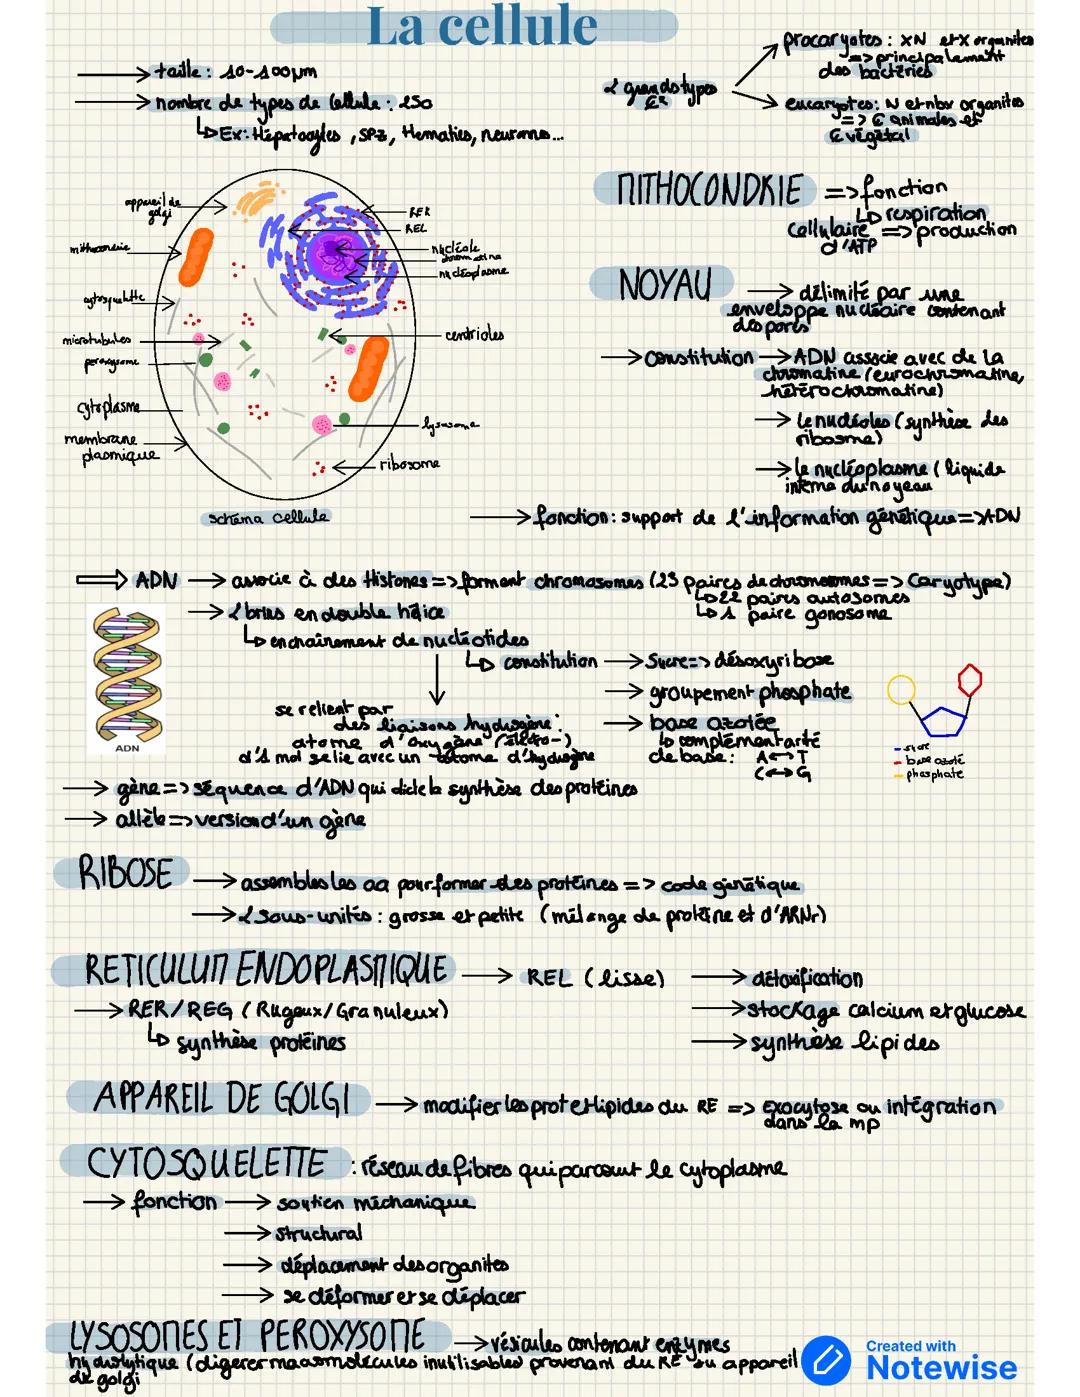 La cellule
taille : 10-100µm
nombre de types de cellule : 250
Ex: Hépatocytes , SPZ, Hématies, neurone...
2 grands types
procaryotes : XN et X organites
=> principalement
des bactéries
eucaryotes: N et nbx organites
=> animales et
végétal
appareil de
golgi
mithocondrie
cytosquelette
microtubules
peroxysome
cytoplasme
membrane
plasmique
RER
REL
nucléole
chromatine
nucléoplasme
centrioles
lysosome
ribosome
schéma cellule
MITHOCONDRIE => fonction
respiration
cellulaire => production
d'ATP
NOYAU → délimité par une
enveloppe nucléaire contenant
des pores
→ constitution → ADN associe avec de la
chromatine (eurochromatine,
hétérochromatine)
→ le nucléoles (synthèse des
ribosme)
→ le nucléoplasme ( liquide
interne du noyeau
→ fonction : support de l'information génétique => ADN
⇒ ADN → associe à des Histones => forment chromosomes (23 paires de chromosomes => Caryotype)
22 paires autosomes
1 paire gonosome
→ 2 brins en double hélice
enchaînement de nucléotides
constitution → Sucre => désoxyribose
→ groupement phosphate
→ base azotée
complémentarité
de base : A ↔ T
C ↔ G
se relient par
des liaisons hydrogène :
atome d'oxygène (électro-)
d'1 mol se lie avec un atome d'hydrogène
ADN
- sucre
- base azoté
- phosphate
→ gène => séquence d'ADN qui dicte la synthèse des protéines
→ allèle => version d'un gène
RIBOSE → assembles les aa pour former des protéines => code génétique
→ 2 sous-unités : grosse et petite (mélange de protéine et d'ARNr)
RETICULUM ENDOPLASMIQUE → REL ( lisse) → détoxification
→ RER/REG ( Rugeux/Granuleux) → stockage calcium et glucose
synthèse protéines → synthèse lipides
APPAREIL DE GOLGI → modifier les prot et lipides du RE => Exocytose ou intégration
dans la mp
CYTOSQUELETTE : réseau de fibres qui parcourt le cytoplasme
→ fonction → soutien méchanique
→ structural
→ déplacement des organites
→ se déformer et se déplacer
LYSOSOMES ET PEROXYSOME → vésicules contenant enzymes
hydrolytique (digerer macromolécules inutilisables provenant du RE ou appareil
de golgi
Created with
Notewise